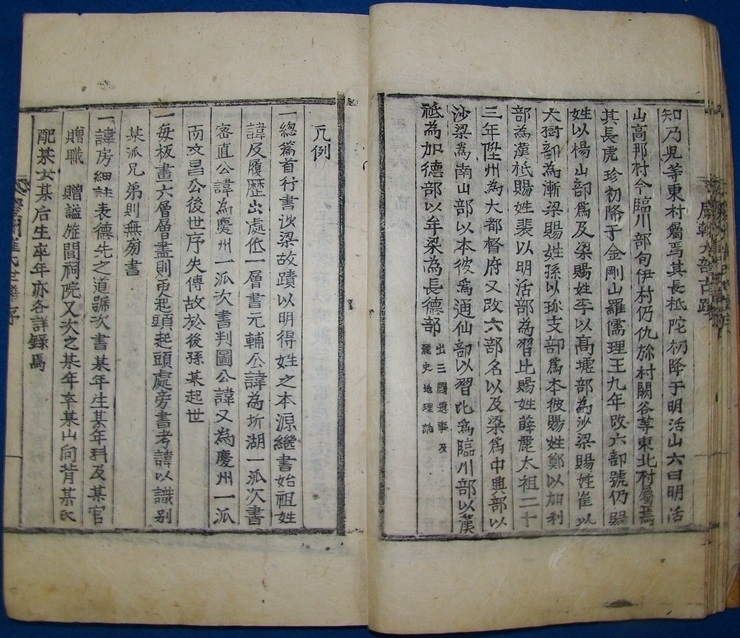 辰韓六部古蹟
知乃見等東村屬焉其長秪陀初降于明活山六曰明活
山高耶村今臨川部旬伊村仍仇旀村闕谷等東北村屬焉
其長虎珍初降于金剛山羅儒理王九年改六部號仍賜
姓以楊山部爲及梁賜姓李以髙墟部為沙梁賜姓崔以
大樹部為漸梁賜姓孫以珍支部為本彼賜姓鄭以加利
部為漢秪賜姓裴以明活部為習比賜姓薛麗太祖二十
三年陞州為大都督府又改六部名以及梁為中興部以
沙梁為南山部以本彼爲通仙部以習比爲臨川部以漢
秪為加德部以牟梁為長德部
出三國遺事及
麗史地理誌
凡例
一總篇首行書沙梁故蹟以明得姓之本源継書始祖姓
諱及履歷出處低一層書元輔公諱為圻湖一派次書
密直公諱為慶州一派次書判圖公諱又為慶州一派
而文昌公後世序失傳故於後孫某起世
一每板書六層層盡則更起頭起頭處旁書考諱以識别
某派兄弟則無旁書
一諱房細註表德先之道號次書某年生某年科及某官
贈職 贈謚旌閭祠院又次之某年卒某山向背某氏
配某女某后生卒年亦各詳錄焉